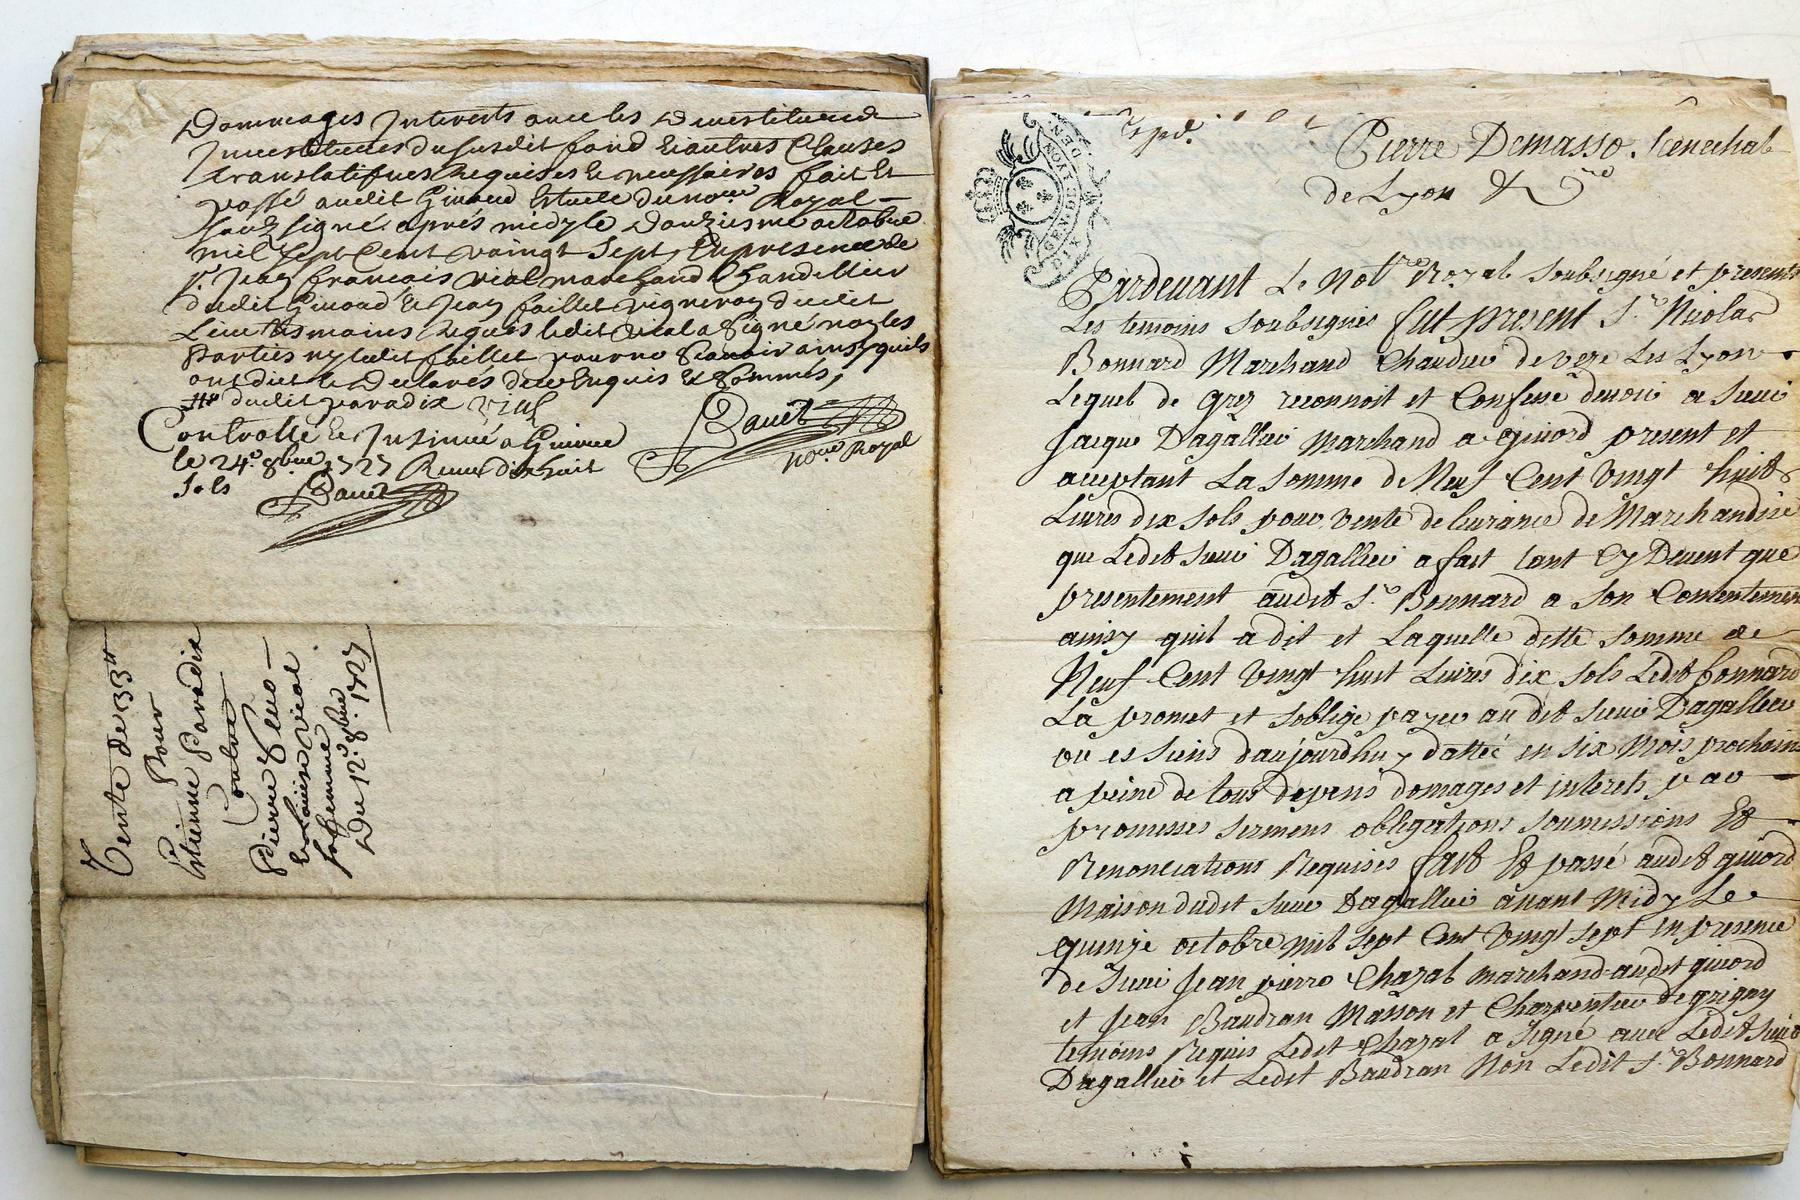 Dommages Interests avec les Devestitures
Investitures du susdit fond & autres Clauses
translatifves Requises & necessaires fait Et
passé audit Givord Estude du no.re Royal
soubsigné apres midy le Douziesme octobre
mil sept Cent vaingt sept, En presence de
s.r Jean francois vial marchand Chandellier
dudit Givord & Jean faillet vigneron dudit
Lieu tesmoins requis ledit vial a signé non les
Parties ny ledit faillet pour ne scavoir ainsy quils
ont dit & Declarés de ce Enquis & sommes,
dudit paradix vial
Controllé & Insinué a Givord
le 24.e 8bre 1727 Receu dix huit
sols
Davet
Davet
no.re Royal
Vente de 33 tt
Pour
Estienne Paradix
Contre
Pierre
& vial
sa femme
Du 12.e 8bre. 1727
GEN DE LYON
DIX DEN
Exp.
Pierre Demasso. Senechal
de Lyon &
Pardevant Le Not.re Royal soubsigné et presents
Les temoins soubsignés fut present s.r Nicolas
Bonnard Marchand Lès Lyon
Lequel de grez reconnoit et Confesse devoir a sieur
Jacque Dagallier Marchand a givord present et
acceptant La somme de Neuf Cent vingt huit
Livres dix sols pour vente delivrance de Marchandise
que Ledit sieur Dagallier a fait tant Cy Devent que
presentement audit s.r Bonnard a son Contentement
ainsy quil a dit et Laquelle dette somme de
Neuf Cent vingt huit Livres dix sols Ledit bonnard
La promet et soblige payer au dit sieur Dagallier
ou es siens daujourdhuy datté en six Mois prochains
a peine de tous depens domages et interets par
promesses sermens obligations soumissions Et
Renonciations Requises fait Et passé audit givord
Maison dudit sieur Dagallier avant Midy Le
quinze octobre mil sept Cent vingt sept in presence
de sieur Jean pierre Chazal marchand audit givord
et Jean Baudran Masson et Charpentier de grigny
temoins Requis Ledit Chazal a signé avec Ledit sieur
Dagallier et Ledit Baudran Non Ledit s.r Bonnard